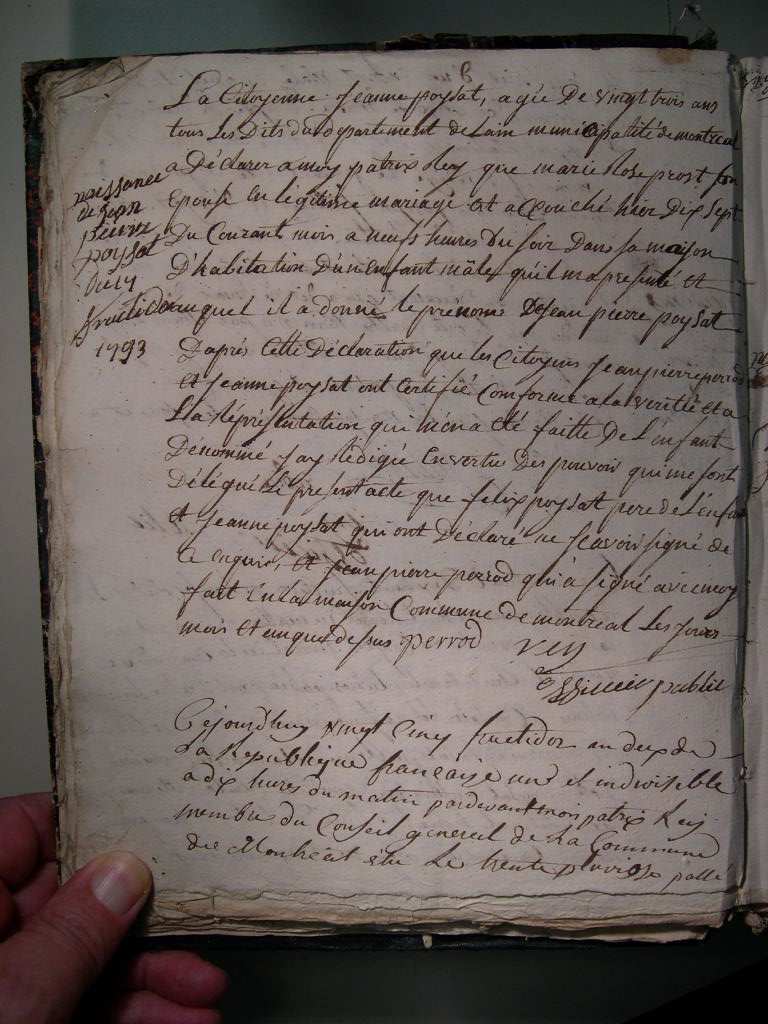 La Citoyenne jeanne poysat, agée De vingt trois ans
tous Les Dits du departement de Lain municipallité de montreal
a Déclarer a moy patrix Rey que marie Rose prost son
Epouse En légitime mariage Et accouché hier Dix Sept
Du Courant mois a neufs hures Du soir Dans sa maison
D'habitation D'un Enfant mâle qu'il ma presenté et
auquel il à donné le prénoms De jean pierre poysat
naissance
de jean
pierre
poysat
Du 17
fructidor
1793
D'aprés Cette Déclaration que les Citoyens jean pierre perrod
et jeanne poysat ont Certifié Comforme a la verité et a
La Réprésentation qui m'en a été faitte De L'enfant
Dénommé j'ay Rédigée En vertu Des pouvoir qui me sont
Délégué Le present acte que felix poysat pere de L'enfant
et jeanne poysat qui ont Déclaré ne scavoir signé de
ce enquis, et jean pierre perrod qui à signé avec moy
fait En La maison Commune de montreal Les jours
mois et an que dessus perrod Rey
officier public
Cejourdhuy vingt cinq fructidor an deux de
La Republique francaise une et indivisible
a dix hures du matin pardevant moi patrix Rey
membre du Conseil general de La Commune
de Montréal élu Le trente pluviose